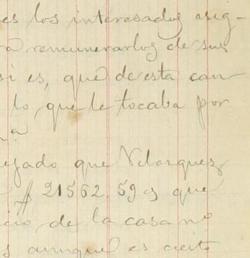 es los interesados asig-
a remunerarlos de sus
si es, que de esta can-
lo, que le tocaba por
ejado que Velasquez
$ 21562.59 cs que
cio de la casa no
s aunque es cierto